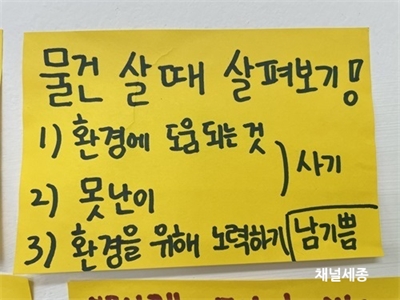 물건 살때 살펴보기!
1) 환경에 도움되는 것
사기
2) 못난이
3) 환경을 위해 노력하기
남기쁨
채널세종